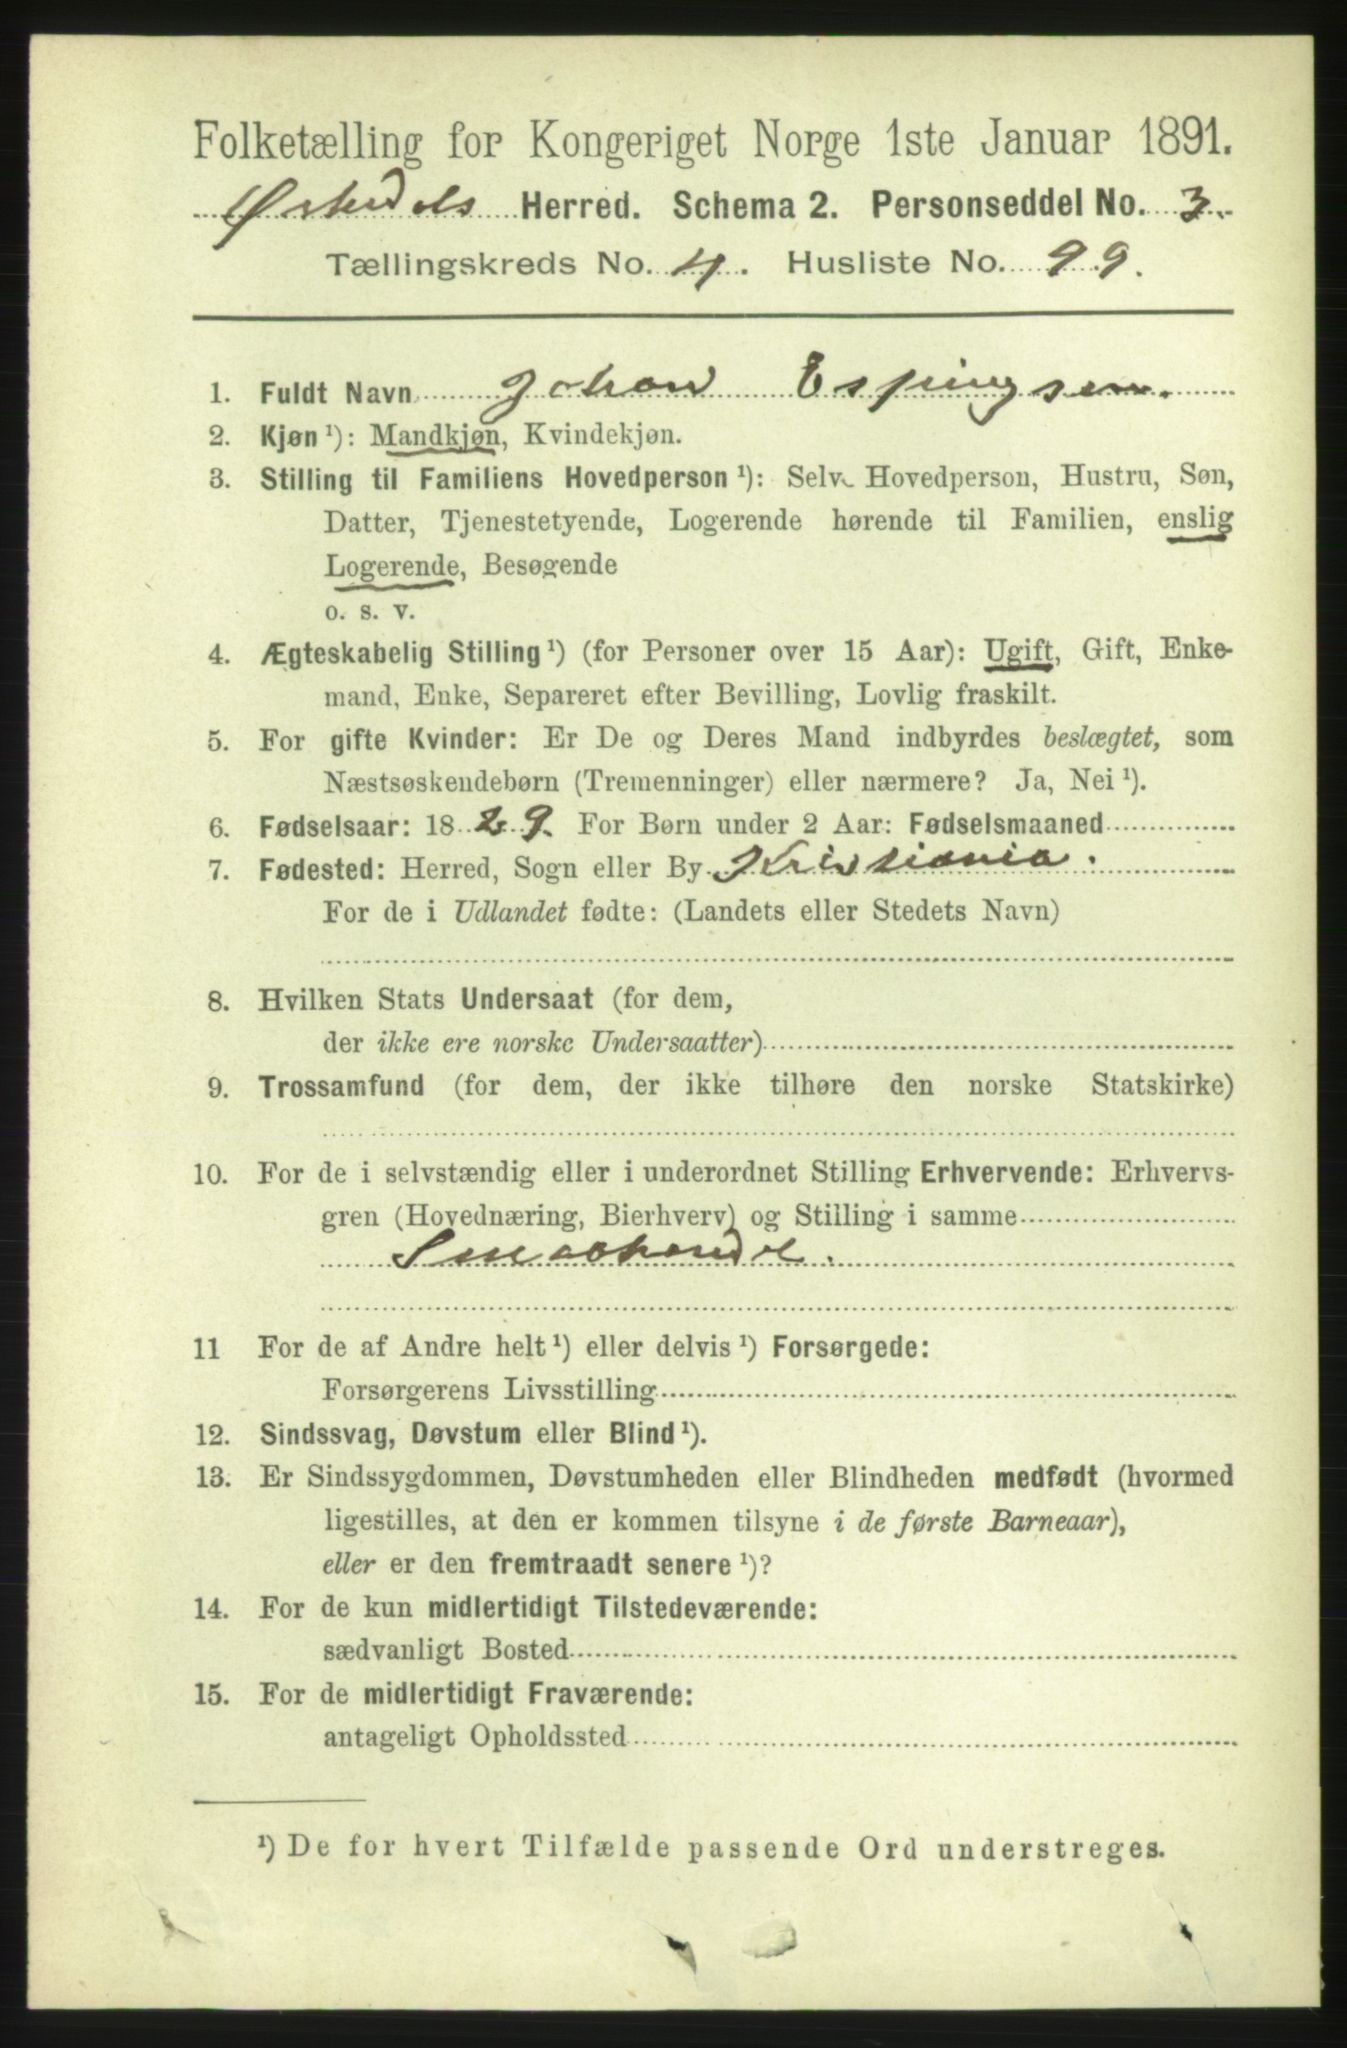 Folketælling for Kongeriget Norge 1ste Januar 1891.
Ørkedals Herred. Schema 2. Personseddel No. 3.
Tællingskreds No. 4. Husliste No. 99.
1. Fuldt Navn Johan Espingsen.
2. Kjøn ¹): Mandkjøn, Kvindekjøn.
3. Stilling til Familiens Hovedperson ¹): Selv Hovedperson, Hustru, Søn,
Datter, Tjenestetyende, Logerende hørende til Familien, enslig
Logerende, Besøgende
o. s. v.
4. Ægteskabelig Stilling ¹) (for Personer over 15 Aar): Ugift, Gift, Enke-
mand, Enke, Separeret efter Bevilling, Lovlig fraskilt.
5. For gifte Kvinder: Er De og Deres Mand indbyrdes beslægtet, som
Næstsøskendebørn (Tremenninger) eller nærmere? Ja, Nei ¹).
6. Fødselsaar: 1829. For Børn under 2 Aar: Fødselsmaaned
7. Fødested: Herred, Sogn eller By Kristiania.
For de i Udlandet fødte: (Landets eller Stedets Navn)
8. Hvilken Stats Undersaat (for dem,
der ikke ere norske Undersaatter)
9. Trossamfund (for dem, der ikke tilhøre den norske Statskirke)
10. For de i selvstændig eller i underordnet Stilling Erhvervende: Erhvervs-
gren (Hovednæring, Bierhverv) og Stilling i samme
Smaahandel.
11 For de af Andre helt ¹) eller delvis ¹) Forsørgede:
Forsørgerens Livsstilling
12. Sindssvag, Døvstum eller Blind ¹).
13. Er Sindssygdommen, Døvstumheden eller Blindheden medfødt (hvormed
ligestilles, at den er kommen tilsyne i de første Barneaar),
eller er den fremtraadt senere ¹)?
14. For de kun midlertidigt Tilstedeværende:
sædvanligt Bosted
15. For de midlertidigt Fraværende:
antageligt Opholdssted
¹) De for hvert Tilfælde passende Ord understreges.